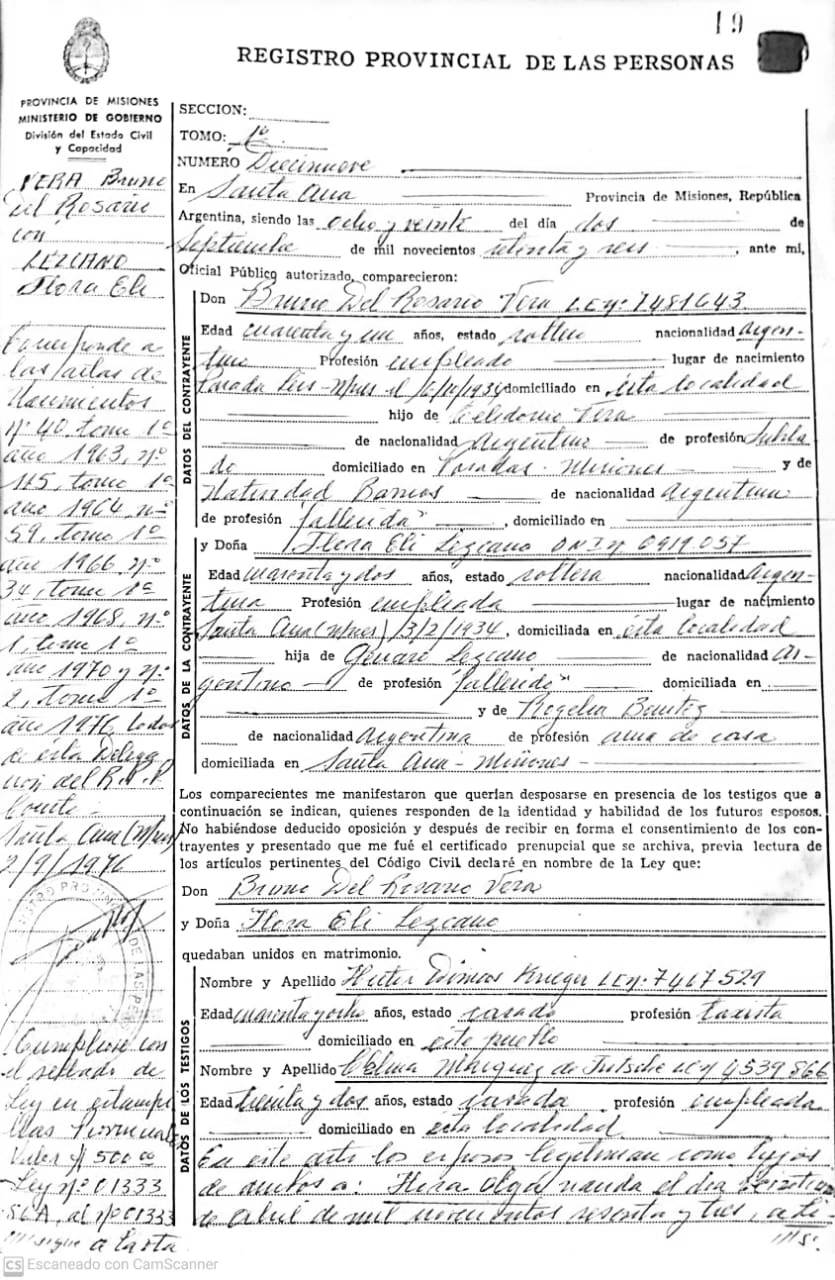 19
REGISTRO PROVINCIAL DE LAS PERSONAS
PROVINCIA DE MISIONES
MINISTERIO DE GOBIERNO
División del Estado Civil
y Capacidad
VERA Bruno
Del Rosario
con
LEZCANO
Flora Eli
Corresponde a
las actas de
Nacimientos
nº 40, tomo 1º
año 1963, nº
115, tomo 1º
año 1964, nº
59, tomo 1º
año 1966, nº
34, tomo 1º
año 1968, nº
1, tomo 1º
año 1970 y nº
2, tomo 1º
año 1976, todos
de esta Delega
ción del R.P.P.
Conste:
Santa Ana (Mnes)
2/9/1976
Cumplióse con
el sellado de
Ley en estampi
llas Provinciales
Valor $ 500,00
Ley nº 01333
56A, al nº 01333
sigue a la vta.
SECCION:
TOMO: 1º
NUMERO Diecinueve
En Santa Ana Provincia de Misiones, República
Argentina, siendo las ocho y veinte del día dos de
Septiembre de mil novecientos setenta y seis, ante mi,
Oficial Público autorizado, comparecieron:
DATOS DEL CONTRAYENTE
Don Bruno Del Rosario Vera L.E.Nº 7481643
Edad cuarenta y un años, estado soltero nacionalidad Argen-
tino Profesión empleado lugar de nacimiento
Posadas Mnes el 1934 domiciliado en ésta localidad
hijo de Celedonio Vera
de nacionalidad Argentino de profesión Jubila
do domiciliado en Posadas - Misiones y de
Natividad Barrios de nacionalidad Argentina
de profesión "fallecida", domiciliado en
DATOS DE LA CONTRAYENTE
y Doña Flora Eli Lezcano DNI Nº 0919.057
Edad cuarenta y dos años, estado soltera nacionalidad Argen-
tina Profesión empleada lugar de nacimiento
Santa Ana (Mnes) 13/2/1934, domiciliada en ésta localidad
hija de Genaro Lezcano de nacionalidad Ar-
gentino de profesión "fallecido" domiciliada en
y de Rogelia Benitez
de nacionalidad Argentina de profesión ama de casa
domiciliada en Santa Ana - Misiones -
Los comparecientes me manifestaron que querían desposarse en presencia de los testigos que a
continuación se indican, quienes responden de la identidad y habilidad de los futuros esposos.
No habiéndose deducido oposición y después de recibir en forma el consentimiento de los con-
trayentes y presentado que me fué el certificado prenupcial que se archiva, previa lectura de
los artículos pertinentes del Código Civil declaré en nombre de la Ley que:
Don Bruno Del Rosario Vera
y Doña Flora Eli Lezcano
quedaban unidos en matrimonio.
DATOS DE LOS TESTIGOS
Nombre y Apellido Hector Krieger L.E.Nº 7417529
Edad cuarenta y ocho años, estado casado profesión taxista
domiciliado en este pueblo
Nombre y Apellido Marquez de 4539866
Edad treinta y dos años, estado casada profesión empleada
domiciliado en ésta localidad
En este acto los esposos legitiman como hijos
de ambos a: Flora Olga nacida el día
de Abril de mil novecientos sesenta y tres, a
CS Escaneado con CamScanner